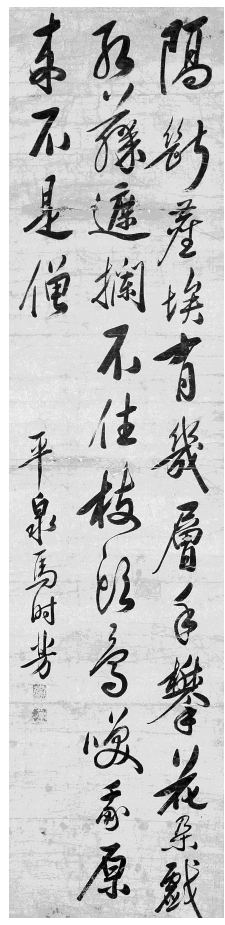 隔斷塵埃有幾層手攀花朵戲
藤遮攔不住枝頭鳥我原
來不是僧
平泉馬时芳